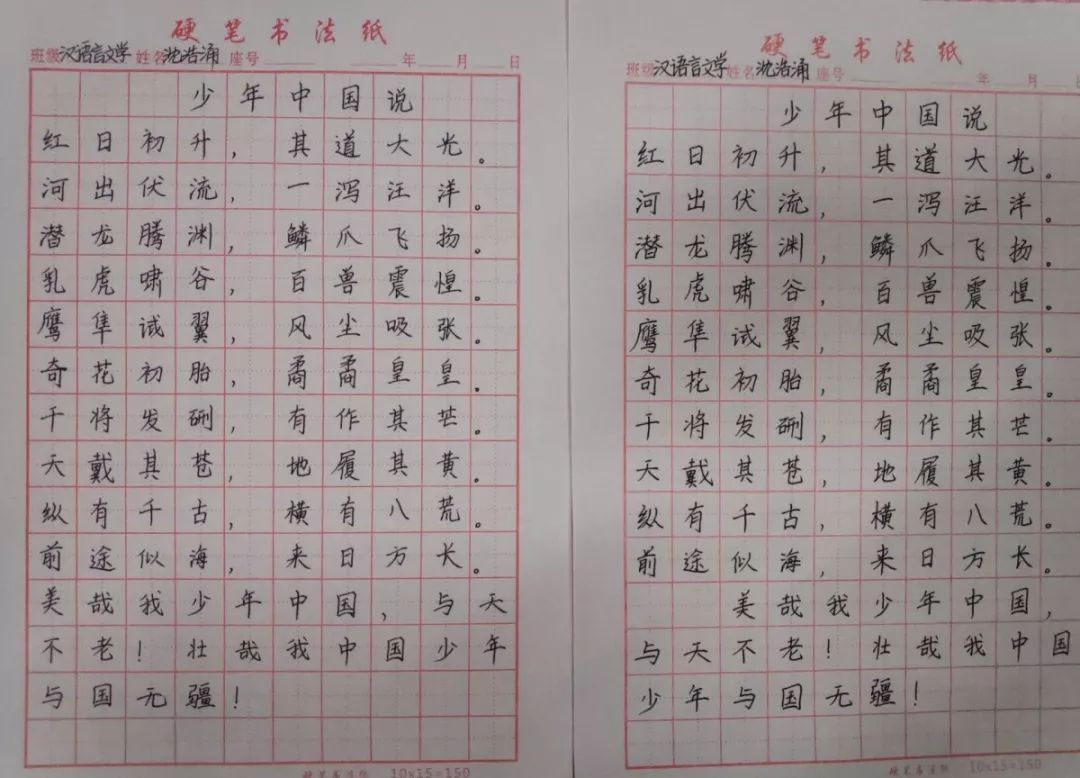 硬笔书法纸
班级 汉语言文学 姓名 沈浩涌 座号 年 月 日
少年中国说
红日初升，其道大光。
河出伏流，一泻汪洋。
潜龙腾渊，鳞爪飞扬。
乳虎啸谷，百兽震惶。
鹰隼试翼，风尘吸张。
奇花初胎，矞矞皇皇。
干将发硎，有作其芒。
天戴其苍，地履其黄。
纵有千古，横有八荒。
前途似海，来日方长。
美哉我少年中国，与天
不老！壮哉我中国少年
与国无疆！
硬笔书法纸 10x15=150
硬笔书法纸
班级 汉语言文学 姓名 沈浩涌 座号 年 月 日
少年中国说
红日初升，其道大光。
河出伏流，一泻汪洋。
潜龙腾渊，鳞爪飞扬。
乳虎啸谷，百兽震惶。
鹰隼试翼，风尘吸张。
奇花初胎，矞矞皇皇。
干将发硎，有作其芒。
天戴其苍，地履其黄。
纵有千古，横有八荒。
前途似海，来日方长。
美哉我少年中国，
与天不老！壮哉我中国
少年与国无疆！
硬笔书法纸 10x15=150